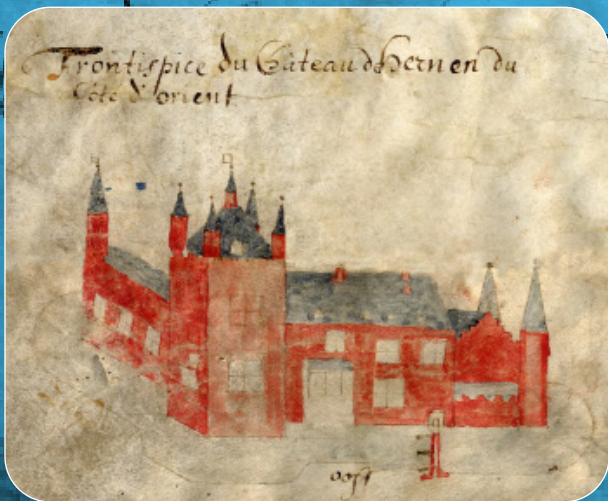 Frontispice du Château d'hernen du
Côté d'orient
oost